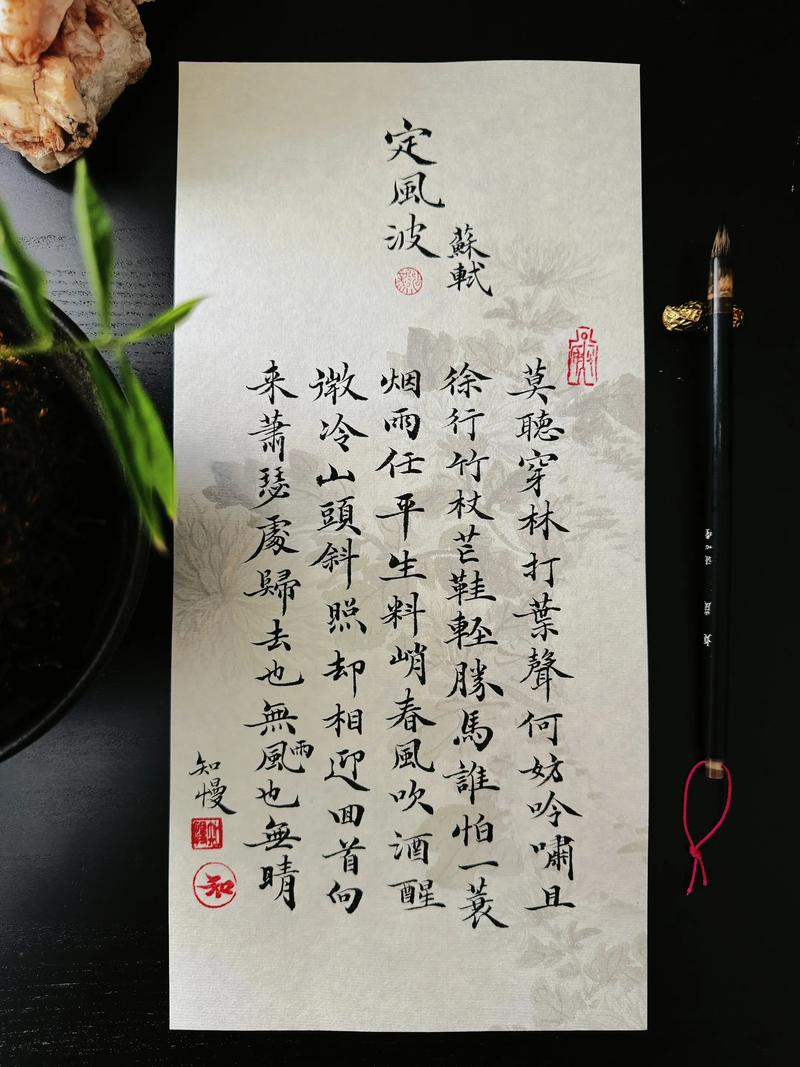 定風波
蘇軾
莫聽穿林打葉聲何妨吟嘯且
徐行竹杖芒鞋輕勝馬誰怕一蓑
烟雨任平生料峭春風吹酒醒
微冷山頭斜照却相迎囬首向
来蕭瑟處歸去也無風雨也無晴
知慢
知